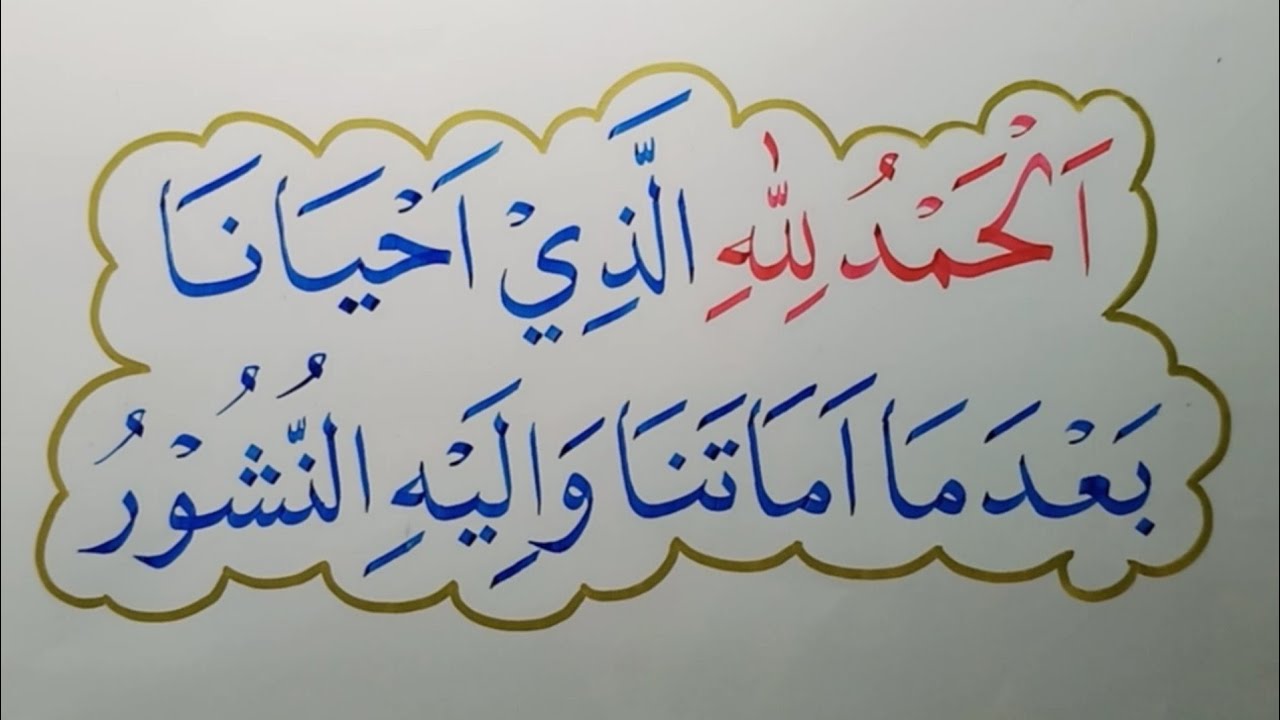 اَلْحَمْدُ لِلّٰهِ الَّذِيْ اَحْيَانَا
بَعْدَ مَا اَمَاتَنَا وَاِلَيْهِ النُّشُوْرُ